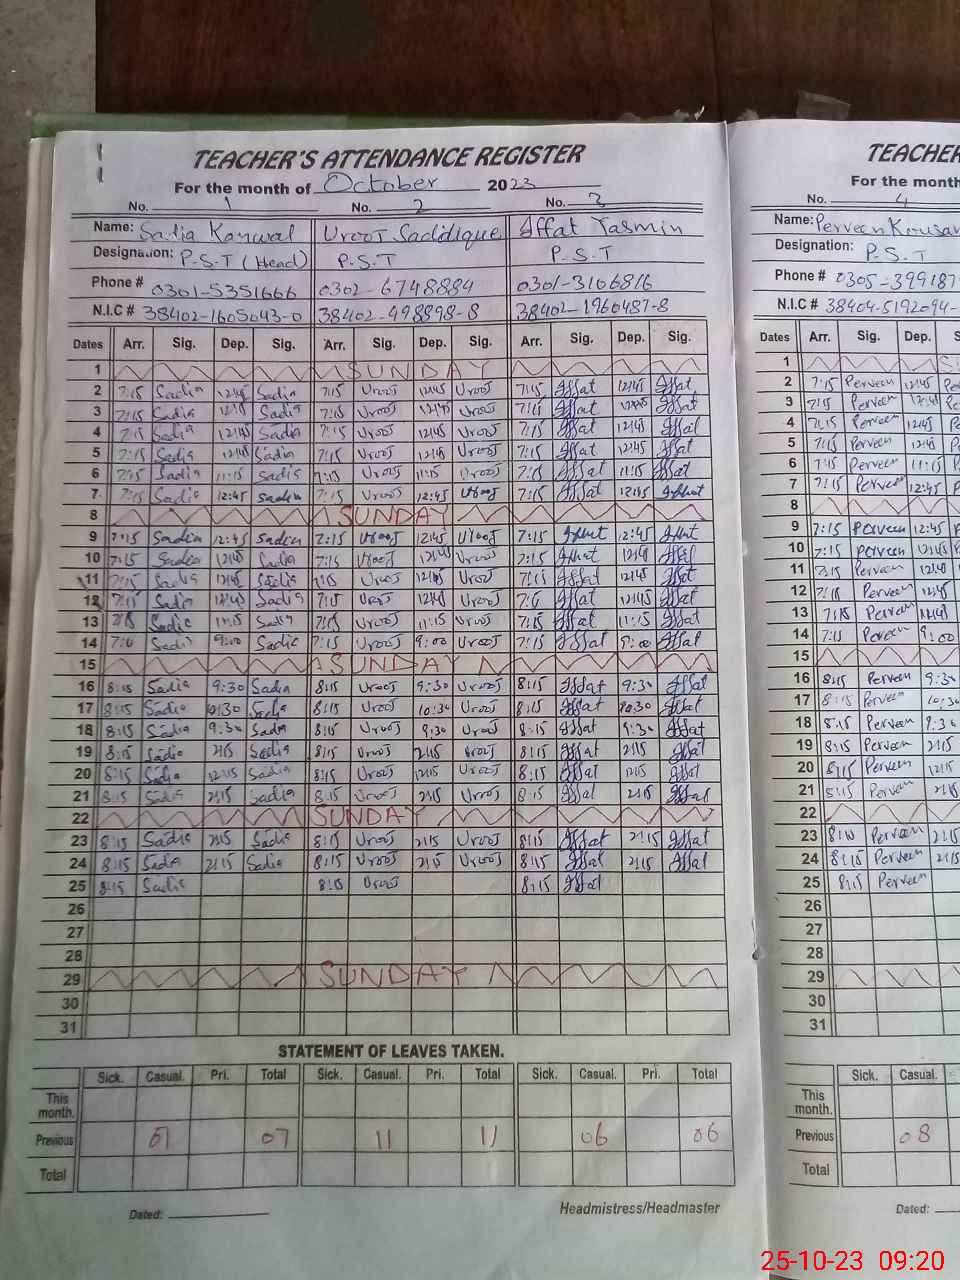 TEACHER'S ATTENDANCE REGISTER
For the month of October 2023
No. 1 No. 2 No. 3
Name: Sadia Kanwal Urooj Saddique Affat Yasmin
Designation: P.S.T (Head) P.S.T P.S.T
Phone # 0301-5351666 0302-6748884 0301-3106816
N.I.C # 38402-1605043-0 38402-498898-8 38402-1960487-8
Dates Arr. Sig. Dep. Sig. Arr. Sig. Dep. Sig. Arr. Sig. Dep. Sig.
1 SUNDAY
2 7:15 Sadia 12:45 Sadia 7:15 Urooj 12:45 Urooj 7:15 Affat 12:45 Affat
3 7:15 Sadia 12:45 Sadia 7:15 Urooj 12:45 Urooj 7:15 Affat 12:45 Affat
4 7:15 Sadia 12:45 Sadia 7:15 Urooj 12:45 Urooj 7:15 Affat 12:45 Affat
5 7:15 Sadia 12:45 Sadia 7:15 Urooj 12:45 Urooj 7:15 Affat 12:45 Affat
6 7:15 Sadia 11:15 Sadia 7:15 Urooj 11:15 Urooj 7:15 Affat 11:15 Affat
7 7:15 Sadia 12:45 Sadia 7:15 Urooj 12:45 Urooj 7:15 Affat 12:45 Affat
8 SUNDAY
9 7:15 Sadia 12:45 Sadia 7:15 Urooj 12:45 Urooj 7:15 Affat 12:45 Affat
10 7:15 Sadia 12:45 Sadia 7:15 Urooj 12:45 Urooj 7:15 Affat 12:45 Affat
11 7:15 Sadia 12:45 Sadia 7:15 Urooj 12:45 Urooj 7:15 Affat 12:45 Affat
12 7:15 Sadia 12:45 Sadia 7:15 Urooj 12:45 Urooj 7:15 Affat 12:45 Affat
13 7:15 Sadia 11:15 Sadia 7:15 Urooj 11:15 Urooj 7:15 Affat 11:15 Affat
14 7:15 Sadia 9:00 Sadia 7:15 Urooj 9:00 Urooj 7:15 Affat 9:00 Affat
15 SUNDAY
16 8:15 Sadia 9:30 Sadia 8:15 Urooj 9:30 Urooj 8:15 Affat 9:30 Affat
17 8:15 Sadia 10:30 Sadia 8:15 Urooj 10:30 Urooj 8:15 Affat 10:30 Affat
18 8:15 Sadia 9:30 Sadia 8:15 Urooj 9:30 Urooj 8:15 Affat 9:30 Affat
19 8:15 Sadia 2:15 Sadia 8:15 Urooj 2:15 Urooj 8:15 Affat 2:15 Affat
20 8:15 Sadia 12:15 Sadia 8:15 Urooj 12:15 Urooj 8:15 Affat 12:15 Affat
21 8:15 Sadia 2:15 Sadia 8:15 Urooj 2:15 Urooj 8:15 Affat 2:15 Affat
22 SUNDAY
23 8:15 Sadia 2:15 Sadia 8:15 Urooj 2:15 Urooj 8:15 Affat 2:15 Affat
24 8:15 Sadia 2:15 Sadia 8:15 Urooj 2:15 Urooj 8:15 Affat 2:15 Affat
25 8:15 Sadia 8:15 Urooj 8:15 Affat
26
27
28
29 SUNDAY
30
31
STATEMENT OF LEAVES TAKEN.
Sick. Casual. Pri. Total Sick. Casual. Pri. Total Sick. Casual. Pri. Total
This month.
Previous 07 07 11 11 06 06
Total
Dated: Headmistress/Headmaster
TEACHER
For the month
No. 4
Name: Perveen Kousar
Designation: P.S.T
Phone # 0305-399187
N.I.C # 38404-5192094-
Dates Arr. Sig. Dep. S
1 S
2 7:15 Perveen 12:45
3 7:15 Perveen 12:45
4 7:15 Perveen 12:45
5 7:15 Perveen 12:45
6 7:15 Perveen 11:15
7 7:15 Perveen 12:45
8
9 7:15 Perveen 12:45
10 7:15 Perveen 12:45
11 7:15 Perveen 12:45
12 7:15 Perveen 12:45
13 7:15 Perveen 11:15
14 7:15 Perveen 9:00
15
16 8:15 Perveen 9:30
17 8:15 Perveen 10:30
18 8:15 Perveen 9:30
19 8:15 Perveen 2:15
20 8:15 Perveen 12:15
21 8:15 Perveen 2:15
22
23 8:15 Perveen 2:15
24 8:15 Perveen 2:15
25 8:15 Perveen
26
27
28
29
30
31
Sick. Casual.
This month.
Previous 08
Total
Dated:
25-10-23 09:20